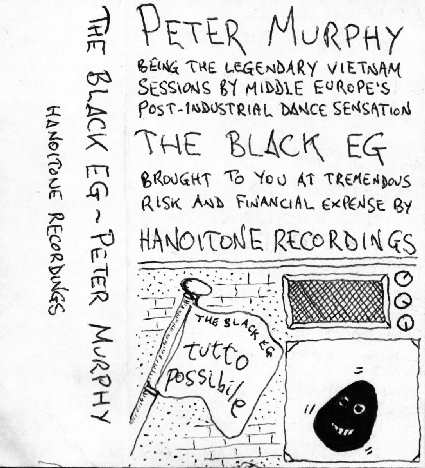 THE BLACK EG ~ PETER MURPHY
HANOITONE RECORDINGS
PETER MURPHY
BEING THE LEGENDARY VIETNAM
SESSIONS BY MIDDLE EUROPE'S
POST-INDUSTRIAL DANCE SENSATION
THE BLACK EG
BROUGHT TO YOU AT TREMENDOUS
RISK AND FINANCIAL EXPENSE BY
HANOITONE RECORDINGS
THE BLACK EG
tutto
possibile